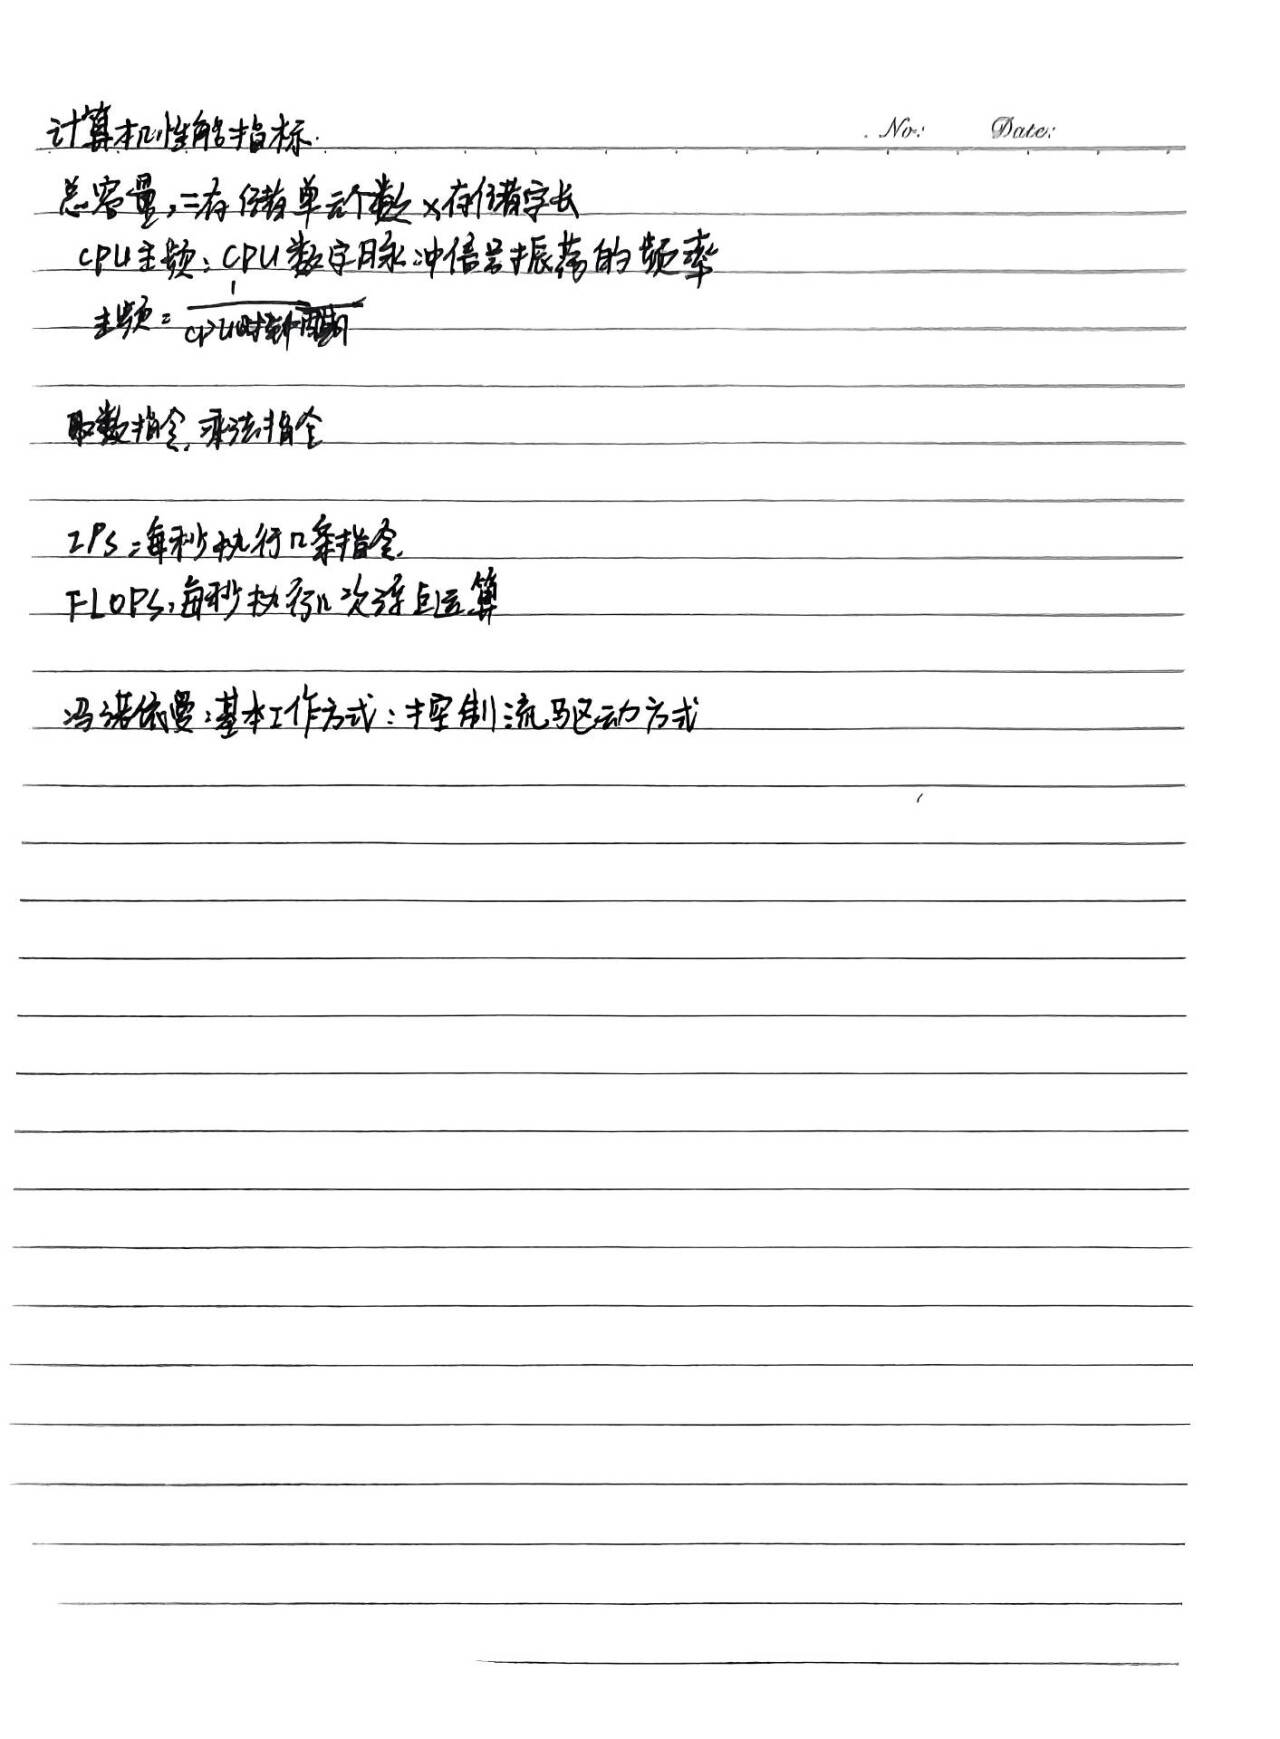 计算机性能指标. No.: Date:
总容量,=存储单元个数×存储字长
CPU主频:CPU数字脉冲信号振荡的频率
主频=1/CPU时钟周期
取数指令,乘法指令
IPS:每秒执行n条指令
FLOPS:每秒执行n次浮点运算
冯诺依曼:基本工作方式:控制流驱动方式